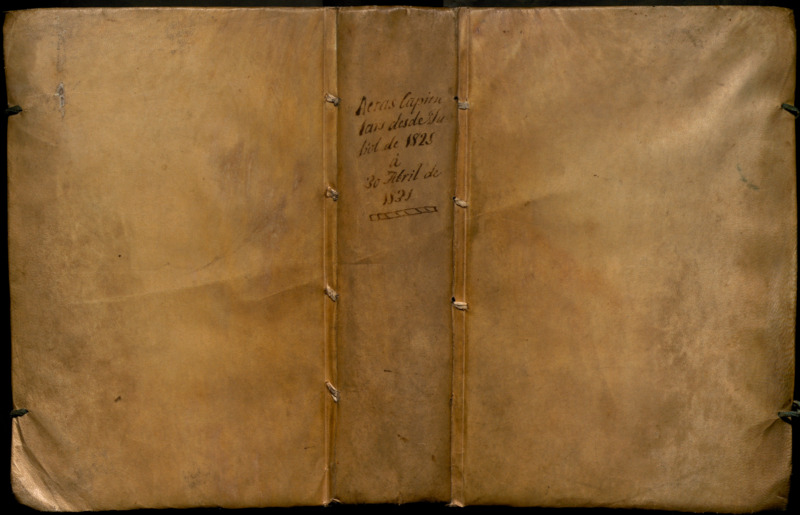 Actas Capitu
lars desde Ju
liol de 1825
à
30 Abril de
1831